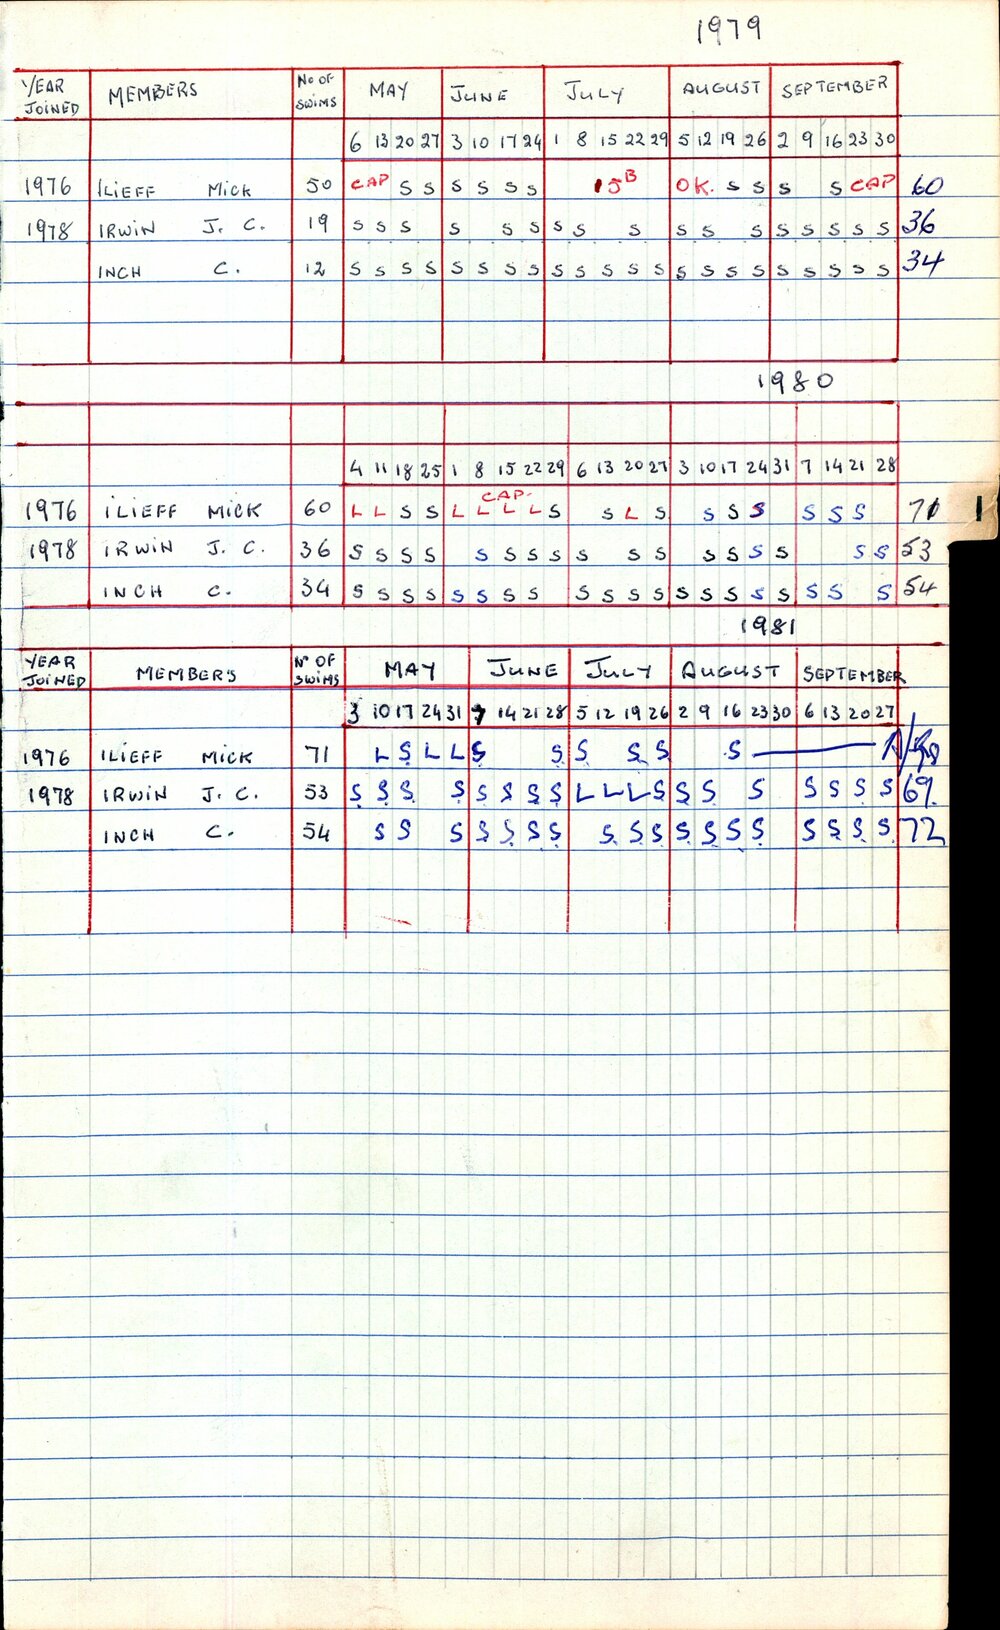 1979
YEAR JOINED MEMBERS No OF SWIMS MAY JUNE JULY AUGUST SEPTEMBER
6 13 20 27 3 10 17 24 1 8 15 22 29 5 12 19 26 2 9 16 23 30
1976 ILIEFF MICK 50 CAP S S S S S S 15B OK. S S S S CAP 60
1978 IRWIN J. C. 19 S S S S S S S S S S S S S S S S S 36
INCH C. 12 S S S S S S S S S S S S S S S S S S S S S S 34
1980
4 11 18 25 1 8 15 22 29 6 13 20 27 3 10 17 24 31 7 14 21 28
CAP.
1976 ILIEFF MICK 60 L L S S L L L L S S L S S S S S S S 71 1
1978 IRWIN J. C. 36 S S S S S S S S S S S S S S S S S 53
INCH C. 34 S S S S S S S S S S S S S S S S S S S S 54
1981
YEAR JOINED MEMBERS No OF SWIMS MAY JUNE JULY AUGUST SEPTEMBER
3 10 17 24 31 7 14 21 28 5 12 19 26 2 9 16 23 30 6 13 20 27
1976 ILIEFF MICK 71 L S L L S S S S S S
1978 IRWIN J. C. 53 S S S S S S S S L L L S S S S S S S S 69.
INCH C. 54 S S S S S S S S S S S S S S S S S S 72